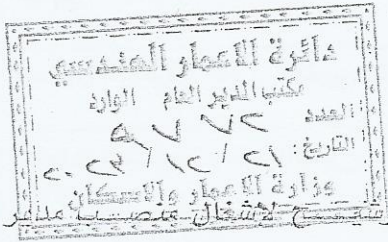 دائرة الاعمار الهندسي
مكتب المدير العام الوارد
العدد: ٥٧٧٢
التاريخ: ٢١ / ١٢ / ٢٠٢٣
وزارة الاعمار والاسكان
لاشغال منصب مدير